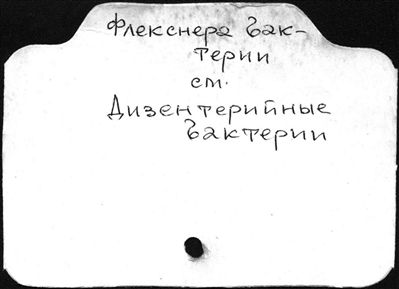 Флекснера бак-
терии
см.
Дизентерийные
бактерии